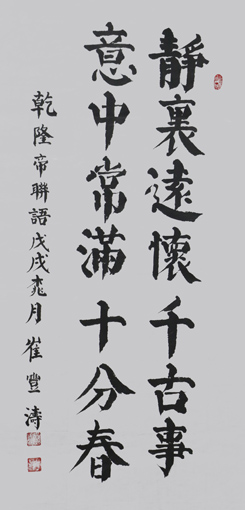 靜裏遠懷千古事
意中常滿十分春
乾隆帝聯語戊戌桃月崔豐濤